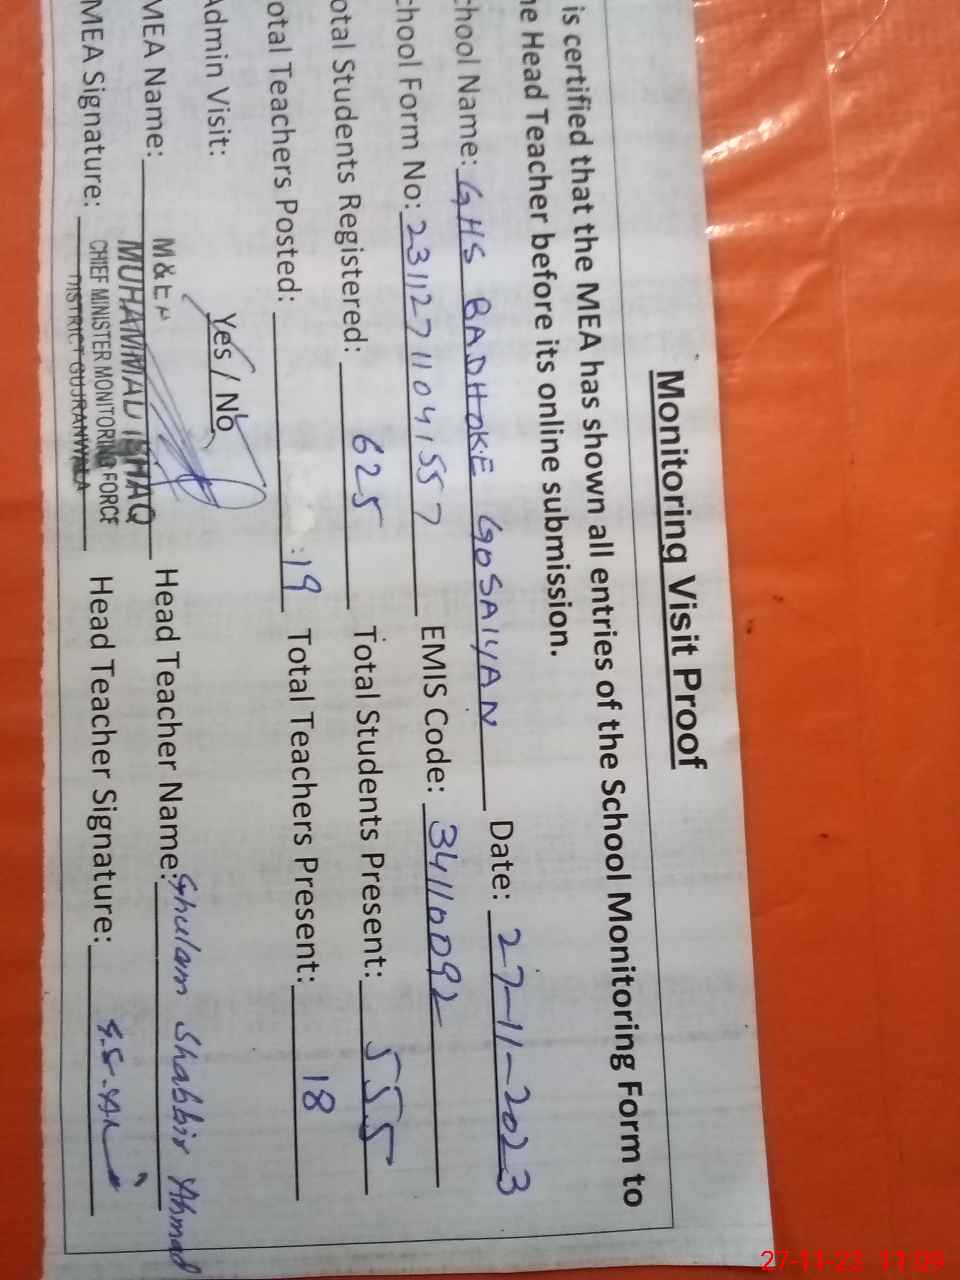 Monitoring Visit Proof
is certified that the MEA has shown all entries of the School Monitoring Form to
he Head Teacher before its online submission.
chool Name: GHS BADHOKE GOSAIYAN Date: 27-11-2023
chool Form No: 23112711041557 EMIS Code: 34110092
otal Students Registered: 625 Total Students Present: 555
otal Teachers Posted: 19 Total Teachers Present: 18
Admin Visit: Yes / No
MEA Name: MUHAMMAD ISHAQ Head Teacher Name: Ghulam Shabbir Ahmad
MEA Signature: CHIEF MINISTER MONITORING FORCE Head Teacher Signature:
DISTRICT GUJRANWALA
27-11-23 11:09